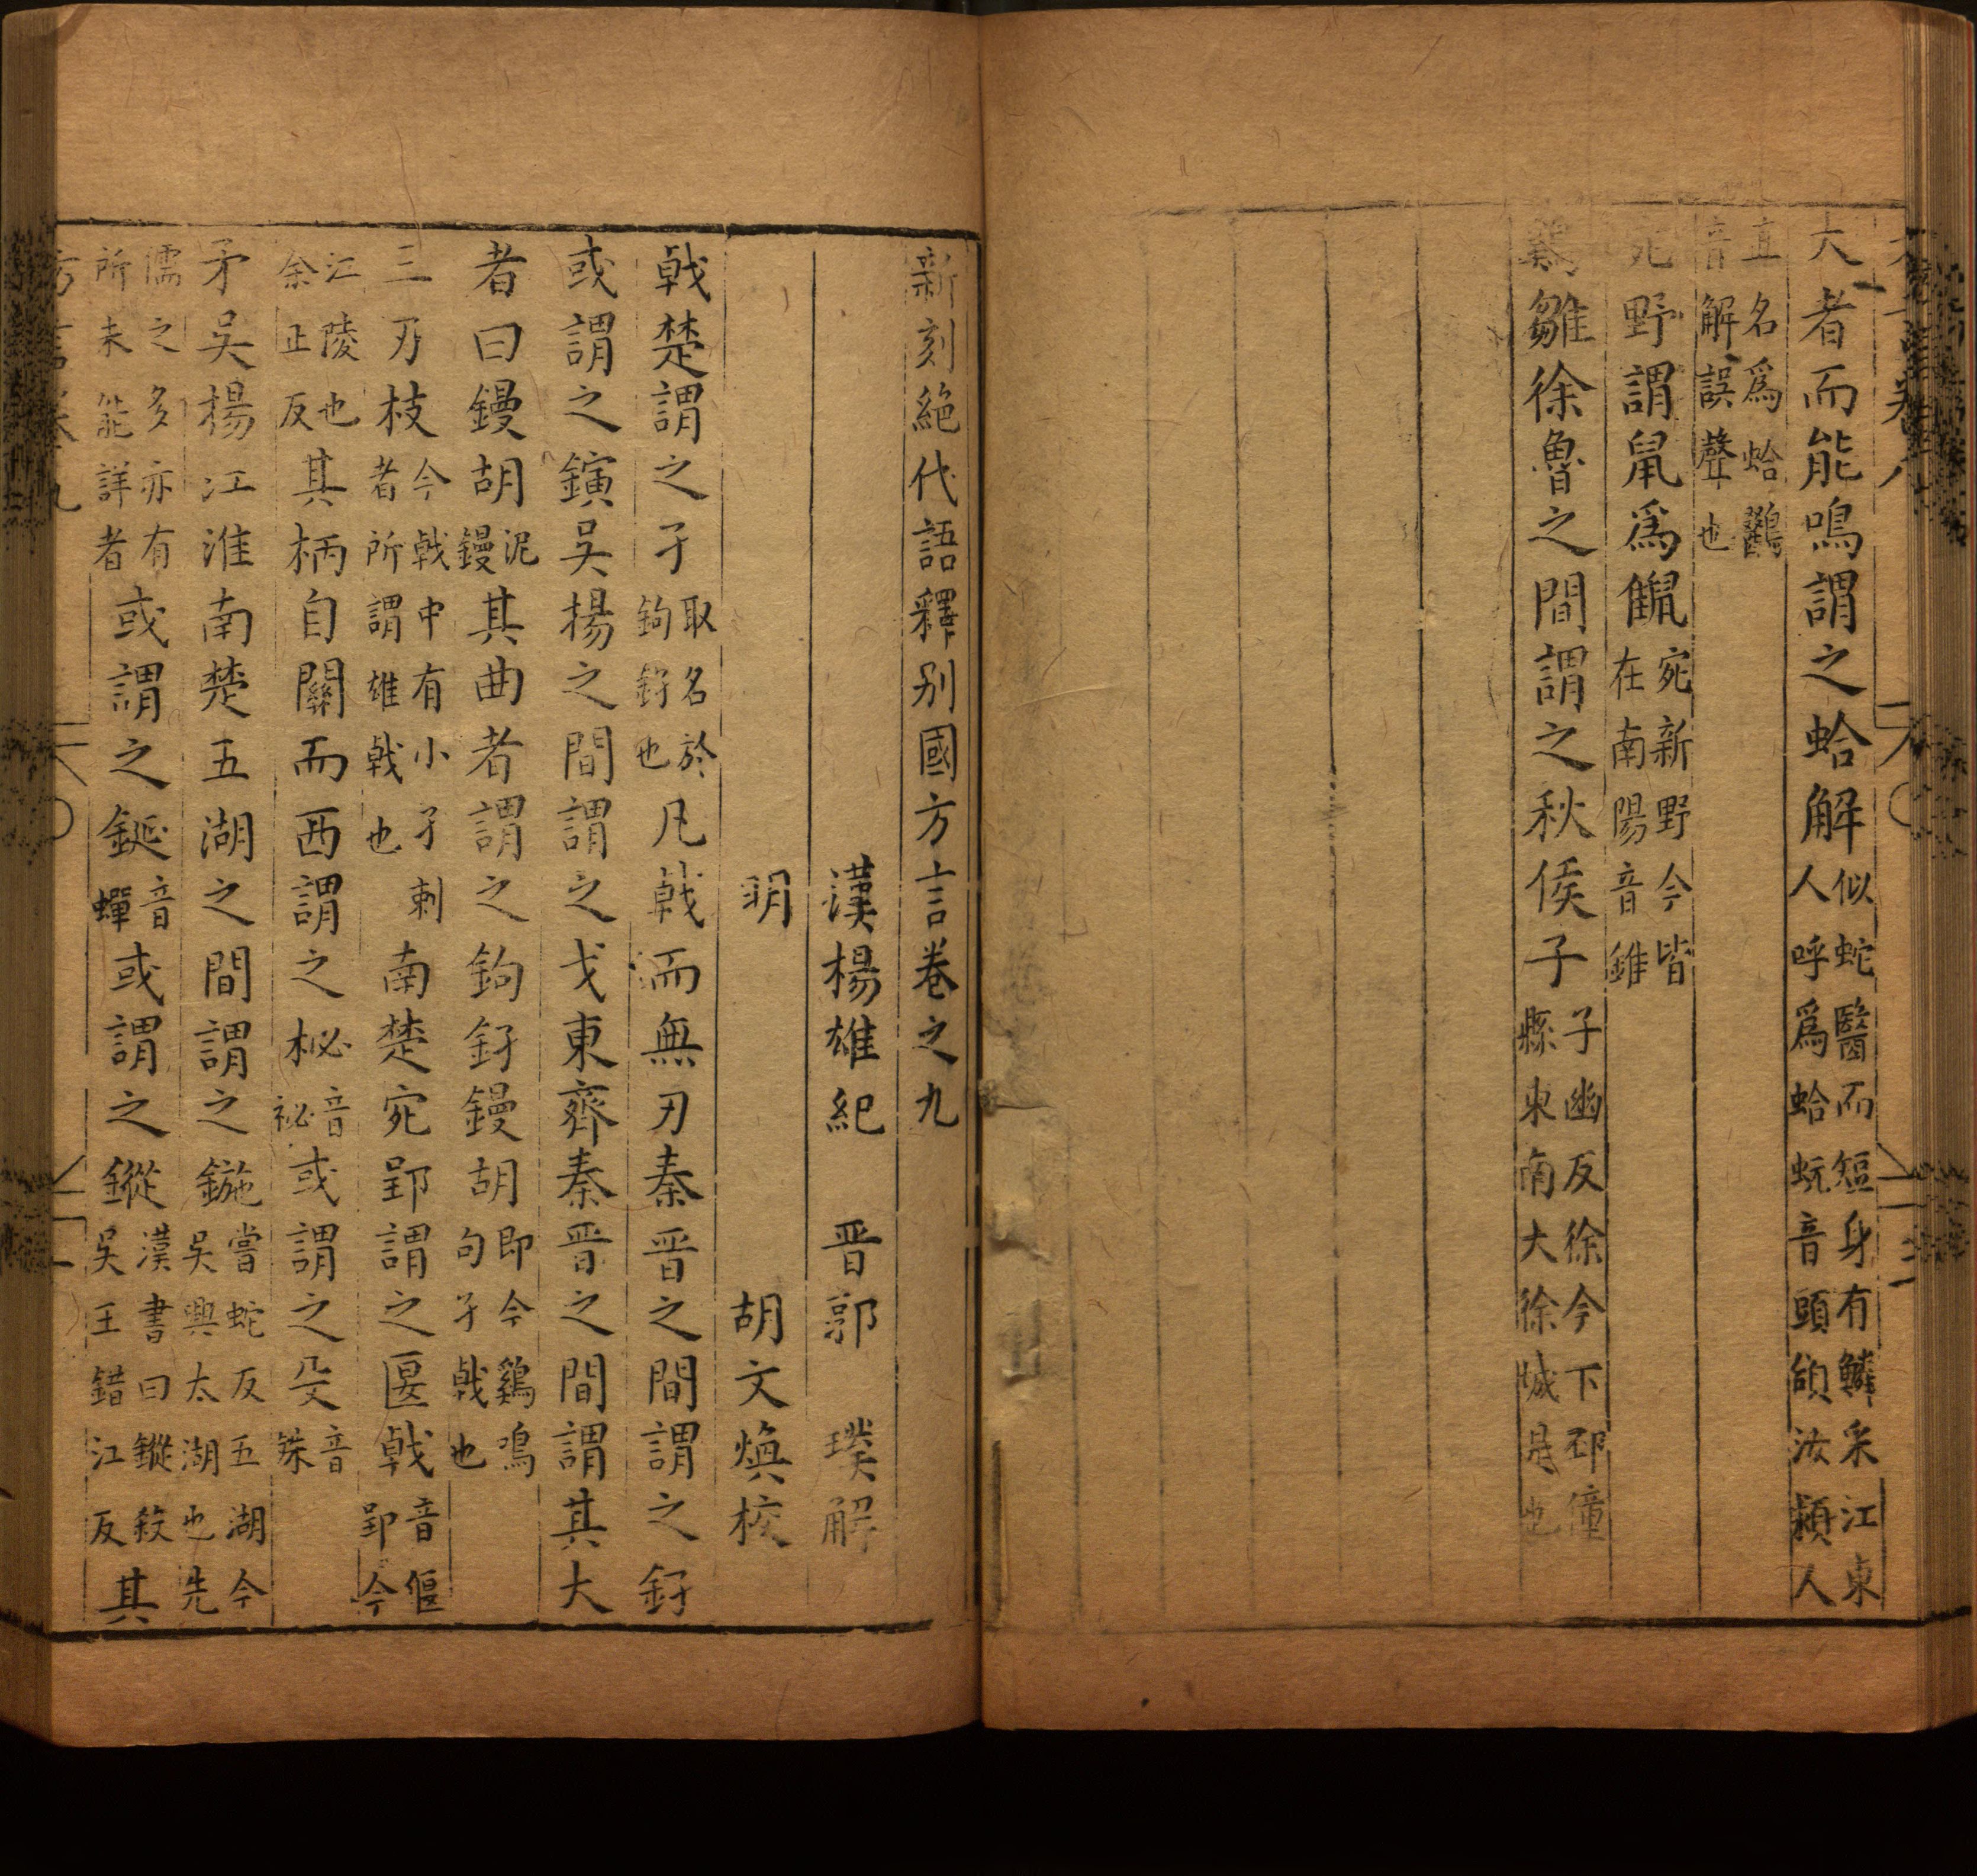 大者而能鳴謂之蛤解似蛇醫而短身有鱗采江東人呼爲蛤蚖音頭頷汝潁人
直名爲蛤鸐音解誤聲也
宛野謂鼠爲䶆宛新野今皆在南陽音錐
鷄雛徐魯之間謂之秋侯子子幽反徐今下邳僮縣東南大徐城是也
新刻絶代語釋别國方言卷之九
漢楊雄紀 晋郭璞解
明 胡文煥校
戟楚謂之孑取名於鉤釨也凡戟而無刃秦晋之間謂之釨
或謂之鏔吳揚之間謂之戈東齊秦晋之間謂其大
者曰鏝胡泥鏝其曲者謂之鉤釨鏝胡即今鷄鳴句孑戟也
三刃枝今戟中有小孑刺者所謂雄戟也南楚宛郢謂之匽戟音偃郢今
江陵也余正反其柄自關而西謂之柲音祕或謂之殳音殊
矛吳楊江淮南楚五湖之間謂之鍦嘗蛇反五湖今吳興太湖也先
儒之多亦有所未能詳者或謂之鋋音蟬或謂之鏦漢書曰鏦殺吳王錯江反其